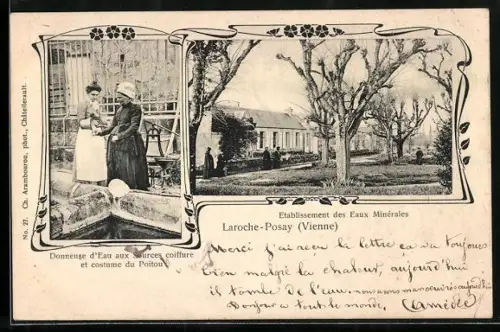 No. 27. Ch. Arambourou, phot., Châtellerault.
Donneuse d'Eau aux Sources coiffure
et costume du Poitou
Etablissement des Eaux Minérales
Laroche-Posay (Vienne)
Merci j'ai reçu la lettre ça va toujours
bien malgré la chaleur, aujourd'hui
il tombe de l'eau, nous avons manœuvres aujourd'hui
Bonjour a tout le monde. Amédée